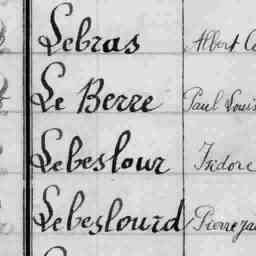 Lebras Albert
Le Berre Paul Louis
Lebeslour Isidore
Lebeslourd Pierre